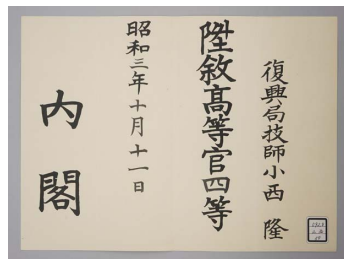 復興局技師小西 隆
陞敘高等官四等
昭和三年十月十一日
内閣